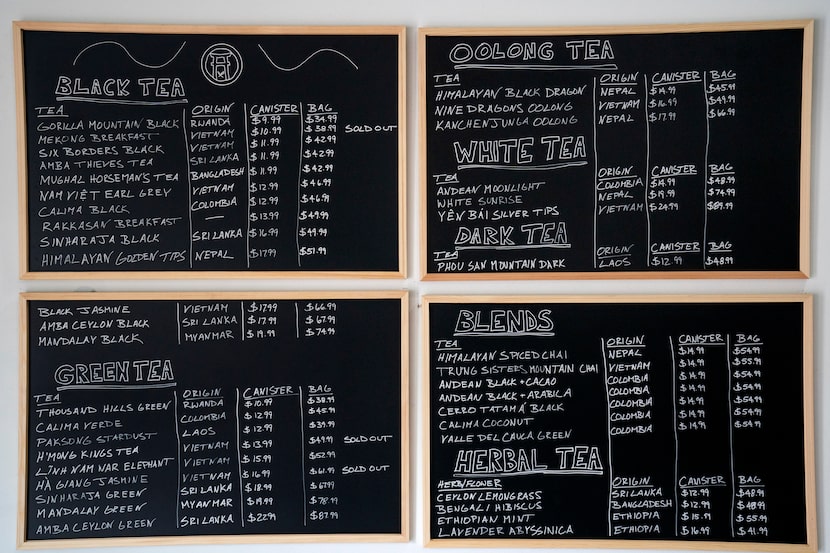 BLACK TEA
TEA ORIGIN CANISTER BAG
GORILLA MOUNTAIN BLACK RWANDA $9.99 $34.99
MEKONG BREAKFAST VIETNAM $10.99 $38.99 SOLD OUT
SIX BORDERS BLACK VIETNAM $11.99 $42.99
AMBA THIEVES TEA SRI LANKA $11.99 $42.99
MUGHAL HORSEMAN'S TEA BANGLADESH $11.99 $42.99
NAM VIỆT EARL GREY VIETNAM $12.99 $46.99
CALIMA BLACK COLOMBIA $12.99 $46.99
RAKKASAN BREAKFAST — $13.99 $49.99
SINHARAJA BLACK SRI LANKA $16.99 $49.99
HIMALAYAN GOLDEN TIPS NEPAL $17.99 $51.99
BLACK JASMINE VIETNAM $17.99 $66.99
AMBA CEYLON BLACK SRI LANKA $17.99 $67.99
MANDALAY BLACK MYANMAR $19.99 $74.99
GREEN TEA
TEA ORIGIN CANISTER BAG
THOUSAND HILLS GREEN RWANDA $10.99 $38.99
CALIMA VERDE COLOMBIA $12.99 $45.99
PAKSONG STARDUST LAOS $12.99 $39.99
H'MONG KINGS TEA VIETNAM $13.99 $49.99 SOLD OUT
LĨNH NAM NAR ELEPHANT VIETNAM $15.99 $52.99
HÀ GIANG JASMINE VIETNAM $16.99 $61.99 SOLD OUT
SINHARAJA GREEN SRI LANKA $18.99 $67.99
MANDALAY GREEN MYANMAR $19.99 $78.99
AMBA CEYLON GREEN SRI LANKA $22.99 $87.99
OOLONG TEA
TEA ORIGIN CANISTER BAG
HIMALAYAN BLACK DRAGON NEPAL $14.99 $45.99
NINE DRAGONS OOLONG VIETNAM $16.99 $49.99
KANCHENJUNGA OOLONG NEPAL $17.99 $66.99
WHITE TEA
TEA ORIGIN CANISTER BAG
ANDEAN MOONLIGHT COLOMBIA $14.99 $48.99
WHITE SUNRISE NEPAL $19.99 $74.99
YÊN BÁI SILVER TIPS VIETNAM $24.99 $89.99
DARK TEA
TEA ORIGIN CANISTER BAG
PHOU SAN MOUNTAIN DARK LAOS $12.99 $48.99
BLENDS
TEA ORIGIN CANISTER BAG
HIMALAYAN SPICED CHAI NEPAL $14.99 $54.99
TRUNG SISTERS MOUNTAIN CHAI VIETNAM $14.99 $55.99
ANDEAN BLACK + CACAO COLOMBIA $14.99 $54.99
ANDEAN BLACK + ARABICA COLOMBIA $14.99 $54.99
CERRO TATAMÁ BLACK COLOMBIA $14.99 $54.99
CALIMA COCONUT COLOMBIA $14.99 $54.99
VALLE DEL CAUCA GREEN COLOMBIA $14.99 $54.99
HERBAL TEA
HERB/FLOWER ORIGIN CANISTER BAG
CEYLON LEMONGRASS SRI LANKA $12.99 $48.99
BENGALI HIBISCUS BANGLADESH $12.99 $48.99
ETHIOPIAN MINT ETHIOPIA $15.99 $55.99
LAVENDER ABYSSINICA ETHIOPIA $16.99 $41.99